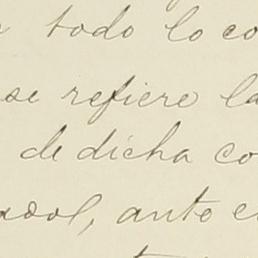 todo lo co
se refiere la
de dicha co
ool, ante e